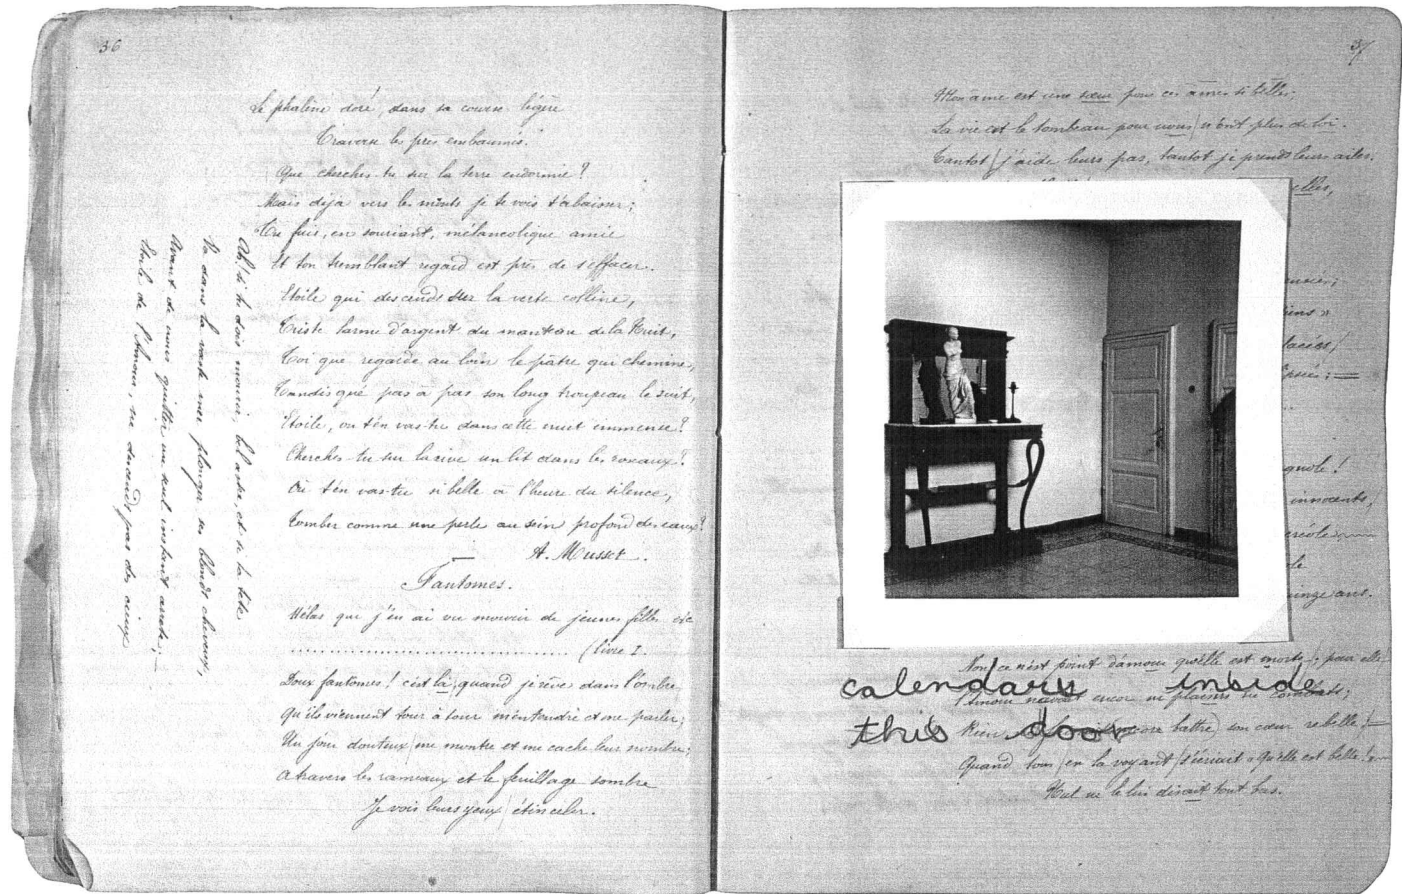 36
Le phalène doré, dans sa course légère
Traverse les près embaumés.
Que cherches-tu sur la terre endormie?
Mais déja vers les monts je te vois t'abaisser;
Tu fuis, en souriant, mélancolique amie
Et ton tremblant regard est près de s'effacer.
Etoile qui descends sur la verte colline,
Triste larme d'argent du manteau de la Nuit,
Toi que regarde au loin le pâtre qui chemine,
Tandis que pas à pas son long troupeau le suit,
Etoile, où t'en vas-tu dans cette nuit immense?
Cherches-tu sur la rive un lit dans les roseaux?
Où t'en vas-tu si belle à l'heure du silence,
Tomber comme une perle au sein profond des eaux?
A. Musset.
Fantomes.
Hélas que j'en ai vu mourir de jeunes filles etc
(livre I.
Doux fantomes! c'est là, quand je rêve dans l'ombre
Qu'ils viennent tour à tour m'entendre et me parler;
Un jour douteux me montre et me cache leur nombre;
A travers les rameaux et le feuillage sombre
Je vois leurs yeux étinceler.
Ah! si tu dois mourir, bel astre, et si ta tête
Va dans la vaste mer plonger ses blonds cheveux,
Avant de nous quitter un seul instant arrête;
Etoile de l'Amour, ne descend pas des cieux
37
Mon âme est une sœur pour ces âmes si belles;
La vie et le tombeau pour nous n'ont plus de loi.
Tantot j'aide leurs pas, tantot je prends leurs ailes.
elles,
gnole!
innocents,
créole
inze ans.
Non, ce n'est point d'amour qu'elle est morte; pour elle
calendars inside
L'Amour n'avait encor ni plaisirs ni combats;
this door
Rien ne battre son cœur rebelle;
Quand tous en la voyant s'écriait « Qu'elle est belle!
Nul ne le lui disait tout bas.